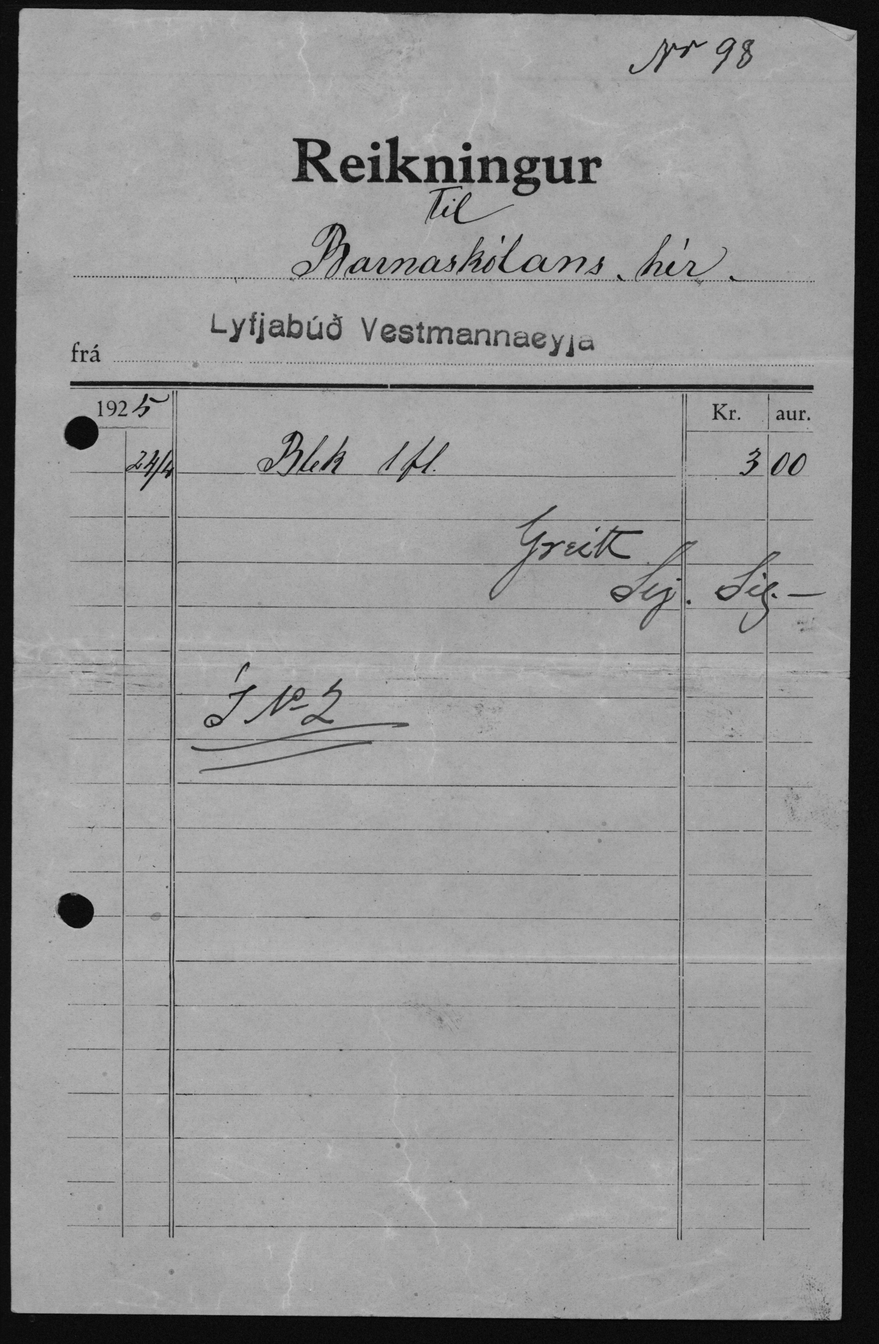 Nr 98
Reikningur
Til
Barnaskólans hér.
frá Lyfjabúð Vestmannaeyja
1925 Kr. aur.
24/4 Blek 1 fl. 3 00
Greitt
Sig. Sig. —
Í No 2